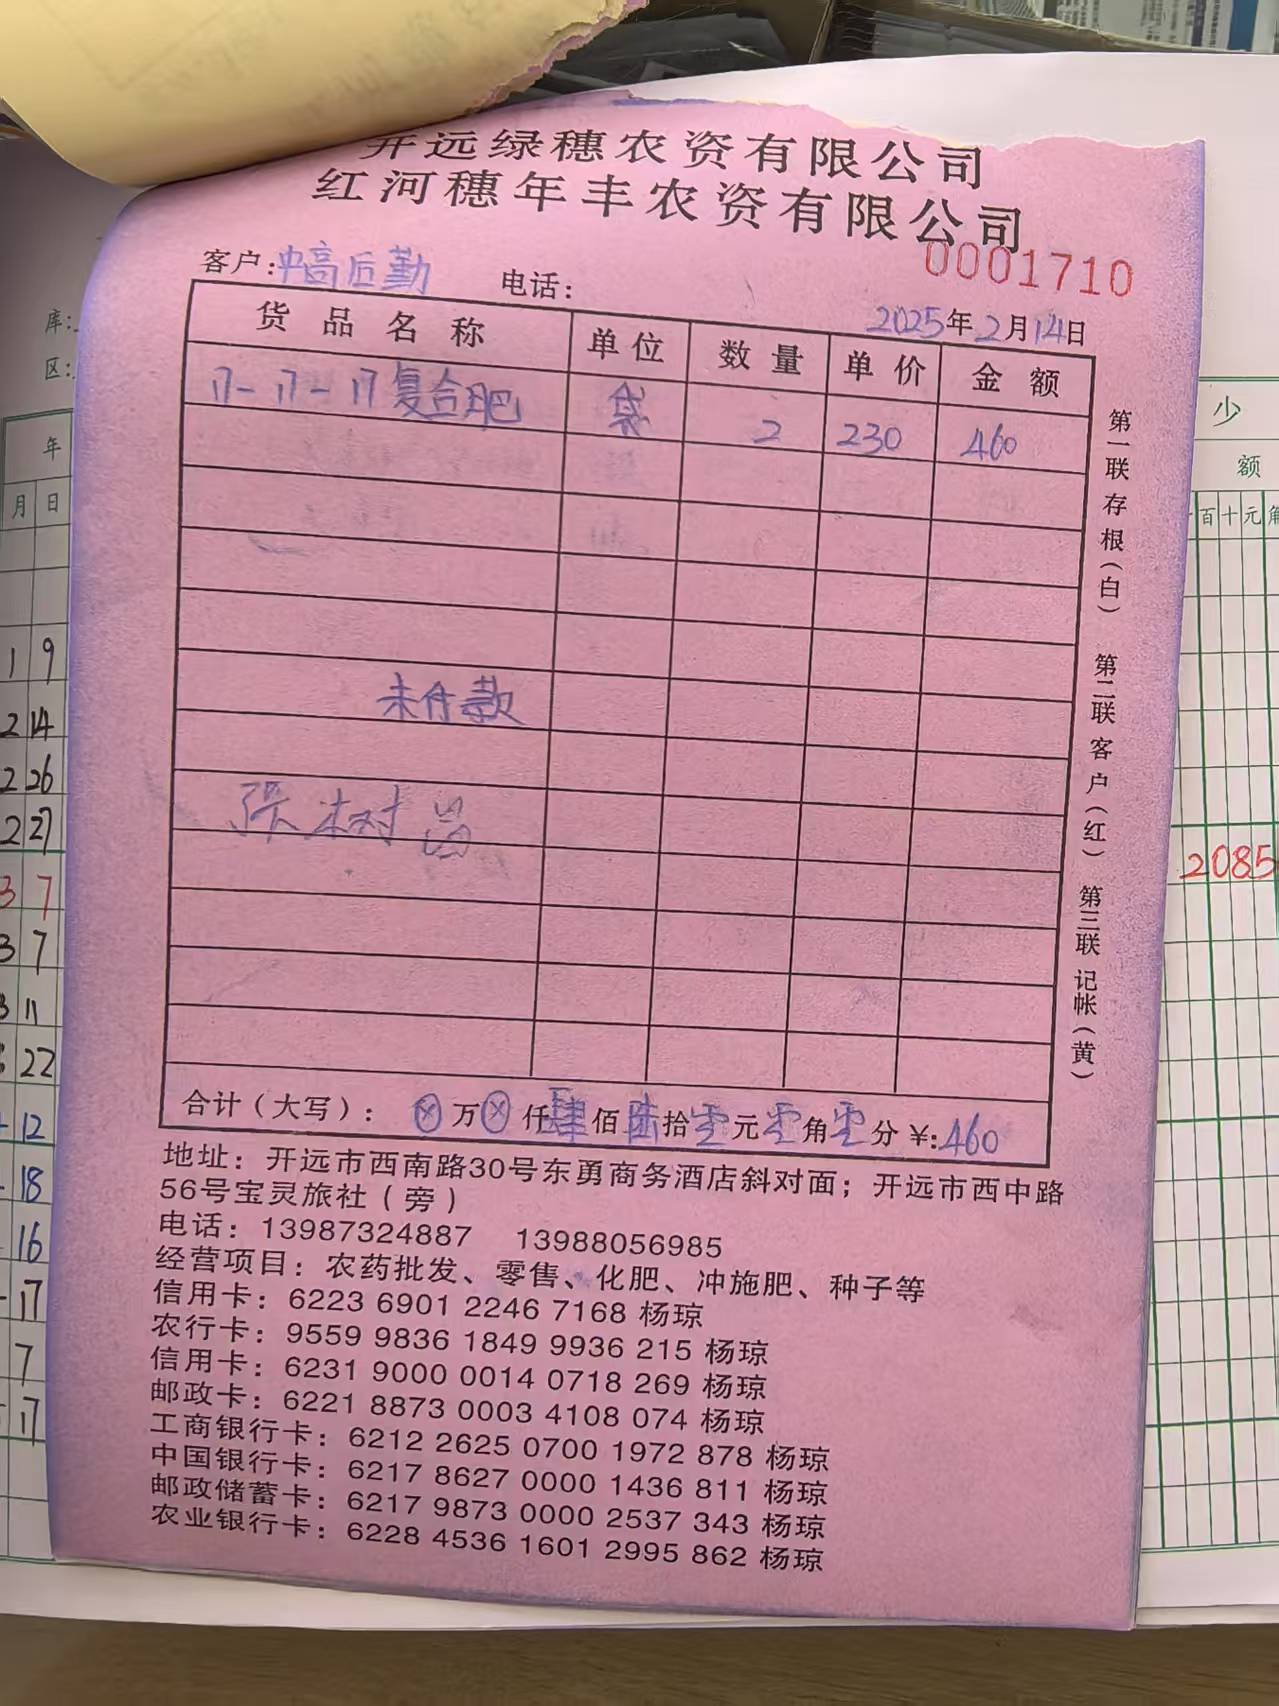 开远绿穗农资有限公司
红河穗年丰农资有限公司
0001710
客户:中高后勤 电话:
2025年2月14日
货品名称 单位 数量 单价 金额
17-17-17复合肥 袋 2 230 460
未付款
张树
合计(大写): ⊗万⊗仟肆佰陆拾零元零角零分¥:460
第一联存根(白) 第二联客户(红) 第三联记帐(黄)
地址:开远市西南路30号东勇商务酒店斜对面;开远市西中路
56号宝灵旅社(旁)
电话:13987324887 13988056985
经营项目:农药批发、零售、化肥、冲施肥、种子等
信用卡:6223 6901 2246 7168 杨琼
农行卡:9559 9836 1849 9936 215 杨琼
信用卡:6231 9000 0014 0718 269 杨琼
邮政卡:6221 8873 0003 4108 074 杨琼
工商银行卡:6212 2625 0700 1972 878 杨琼
中国银行卡:6217 8627 0000 1436 811 杨琼
邮政储蓄卡:6217 9873 0000 2537 343 杨琼
农业银行卡:6228 4536 1601 2995 862 杨琼
库:
区:
年
月 日
1 9
2 14
2 26
2 27
3 7
3 7
3 11
22
12
18
16
17
7
17
少
额
百十元角
2085